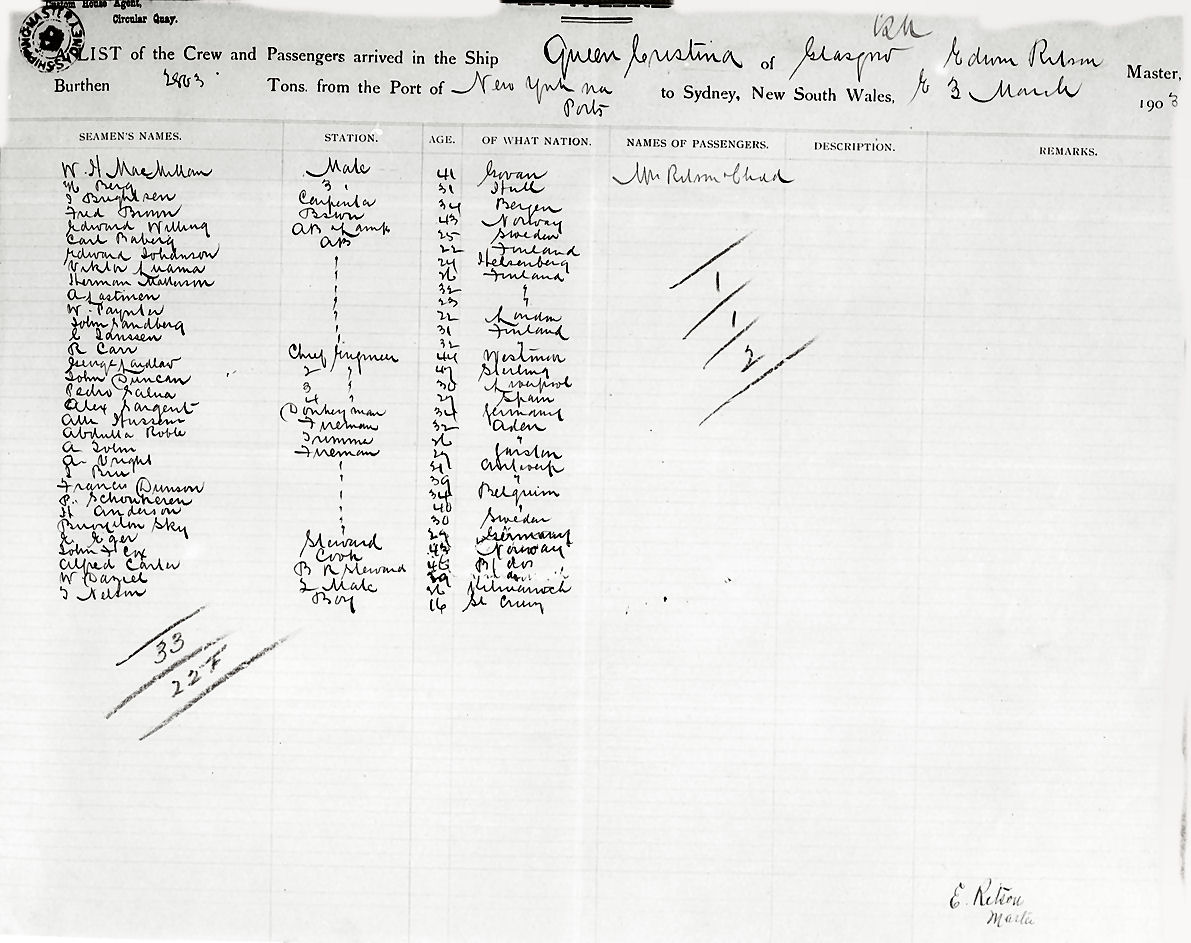 Custom House Agent,
Circular Quay.
SHIPPING MASTER SYDNEY
A LIST of the Crew and Passengers arrived in the Ship Queen Cristina of Glasgow Edwin Ritson Master,
Burthen 2803 Tons. from the Port of New York via Ports to Sydney, New South Wales, 3 March 1903
SEAMEN'S NAMES. STATION. AGE. OF WHAT NATION. NAMES OF PASSENGERS. DESCRIPTION. REMARKS.
W. H MacMillan Mate 41 Govan Mrs Ritson & Child
Berg 3 " 31 Hull
Brightsen Carpenter 34 Bergen
Fred Brown Bswn 43 Norway
Edward Willing AB & Lamps 25 Sweden
Carl Baberg AB 22 Finland
Edward Johanson " 24 Helsenberg
Viktor " 26 Finland
Herman " 32 "
A Lastinen " 23 "
W. Paynter " 22 London
John Sandberg " 31 Finland
Janssen " 32 "
R Carr Chief Engineer 44
George Laidlaw 2 " 47 Sterling
John Duncan 3 " 30 Liverpool
Pedro 4 " 29 Spain
Alex Sargent Donkeyman 34 Germany
Hussein Fireman 32 Aden
Abdulla Roble Trimmer 26 "
A John Fireman 29 Garston
A. Wright " 31 Antwerp
" 39 "
Francis Dunson " 34 Belguim
P. " 40 "
H Anderson " 30 Sweden
Sky " 29 Germany
Eger Steward 43 Norway
John F Cox Cook 46
Alfred Carter B R Steward 39
W Daniel 2 Mate 26 Kilmarnock
J Nelson Boy 16 St Croix
1
1
2
33
22 F
E. Ritson
Master